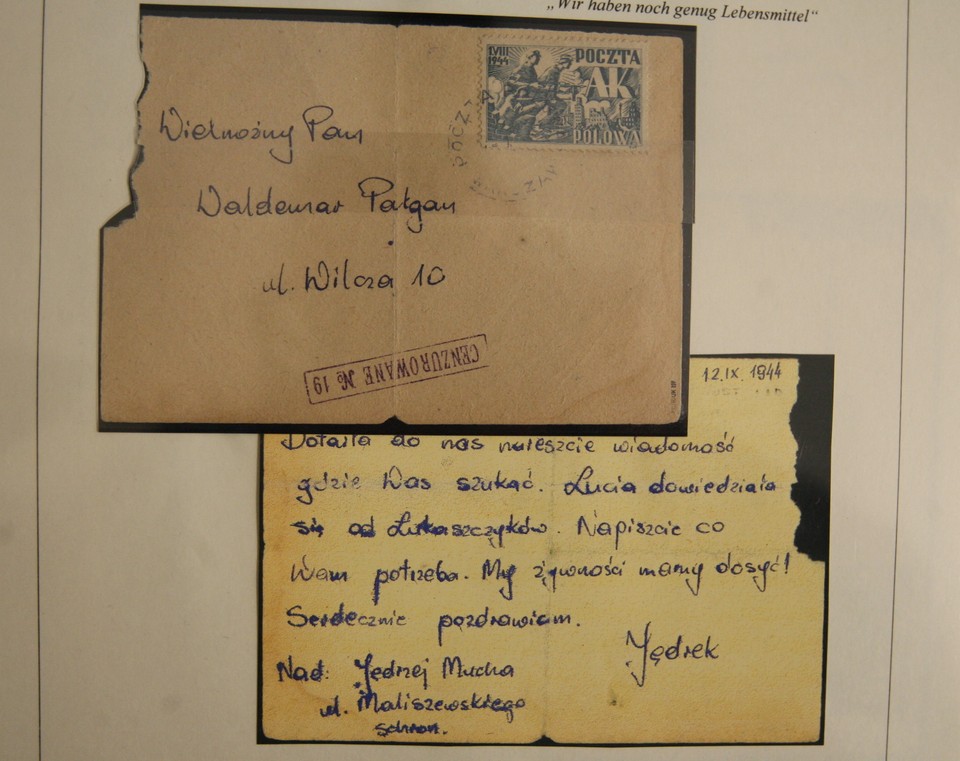 „Wir haben noch genug Lebensmittel“
I.VIII
1944
POCZTA
AK
POLOWA
POCZTA
Wielmożny Pan
Waldemar Pałgan
ul. Wilcza 10
CENZUROWANE № 19
12.IX.1944
Dotarła do nas nareszcie wiadomość
gdzie Was szukać. Lucia dowiedziała
się od Łukaszczyków. Napiszcie co
Wam potrzeba. My żywności mamy dosyć!
Serdecznie pozdrawiam.
Jędrek
Nad: Jędrzej Mucha
ul. Maliszewskiego
schron.